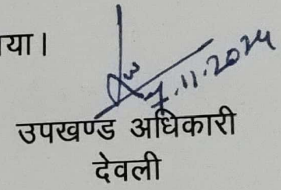 या।
7.11.2024
उपखण्ड अधिकारी
देवली